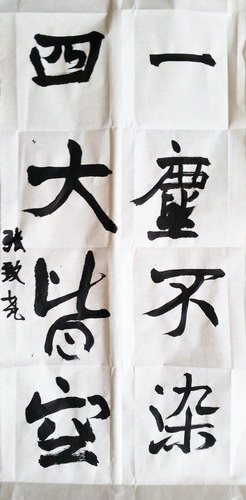 一塵不染
四大皆空
张致尧